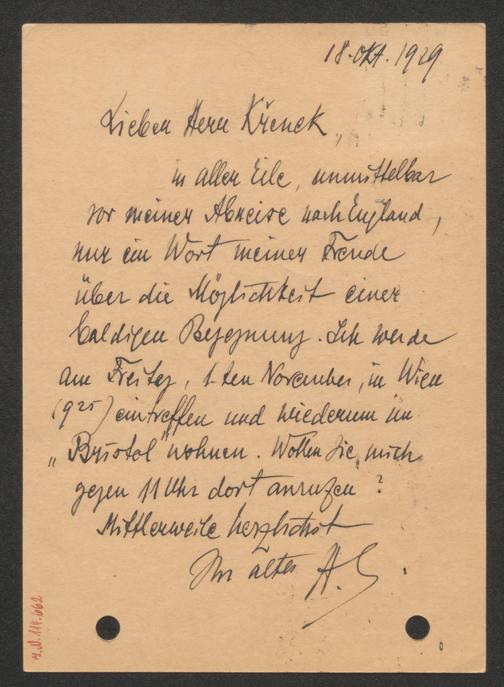 18. Okt. 1929
Lieber Herr Křenek,
in aller Eile, unmittelbar
vor meiner Abreise nach England,
nur ein Wort meiner Freude
über die Möglichkeit einer
baldigen Begegnung. Ich werde
am Freitag, 1-ten November, in Wien
(9²⁵) eintreffen und wiederum im
„Bristol" wohnen. Wollen Sie mich
gegen 11 Uhr dort anrufen?
Mittlerweile herzlichst
Ihr alter A. S.
I.N. 114.662